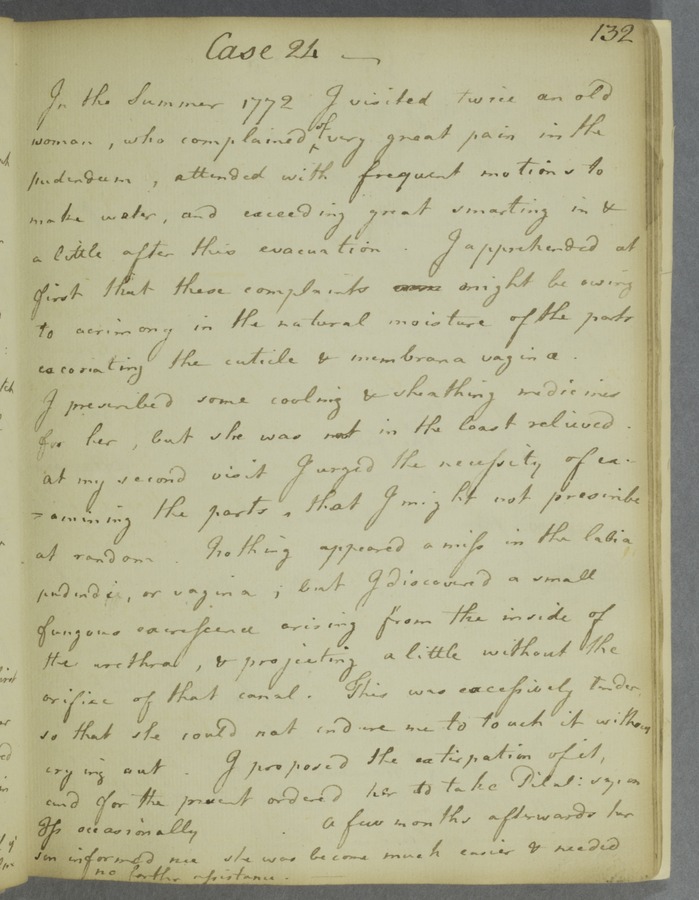 132
Case 24
In the Summer 1772 I visited twice an old
woman, who complained of very great pain in the
pudendum, attended with frequent motions to
make water, and exceeding great smarting in &
a little after this evacuation. I apprehended at
first that these complaints might be owing
to acrimony in the natural moisture of the parts
excoriating the cuticle & membrana vaginæ.
I prescribed some cooling & sheathing medicines
for her, but she was not in the least relieved.
at my second visit I urged the necessity of ex-
=amining the parts, that I might not prescribe
at random. Nothing appeared amiss in the labia
pudendi, or vagina; but I discovered a small
fungous excrescence arising from the inside of
the urethra, & projecting a little without the
orifice of that canal. This was excessively tender,
so that she could not endure me to touch it without
crying out. I proposed the extirpation of it,
and for the present ordered her to take Pilul: sapon
occasionally. A few months afterwards her
son informed me she was become much easier & needed
no farther assistance.